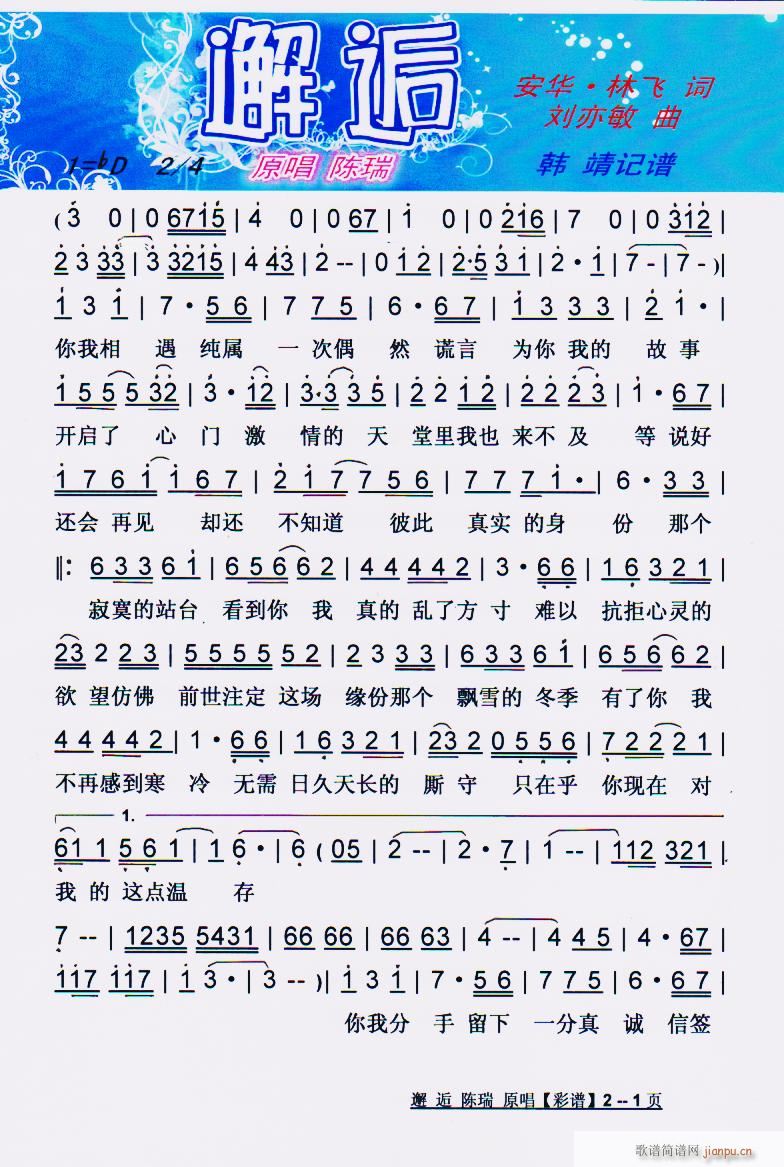 邂逅
安华·林飞 词
刘亦敏 曲
1=♭D 2/4 原唱 陈瑞 韩 靖记谱
( 3 0 | 0 6715 | 4 0 | 0 67 | 1 0 | 0 216 | 7 0 | 0 312 |
2 3 33 | 3 3215 | 4 43 | 2 -- | 0 1 2 | 2·5 3 1 | 2 · 1 | 7 - | 7 - )|
1 3 1 | 7 · 5 6 | 7 7 5 | 6 · 6 7 | 1 3 3 3 | 2 1 · |
你我相 遇 纯属 一 次偶 然 谎言 为你 我的 故 事
1 5 5 5 32 | 3 · 12 | 3·3 3 5 | 2 2 12 | 2 2 2 3 | 1 · 6 7 |
开启了 心 门 激 情的 天 堂里我也 来不 及 等 说好
1 7 6 1 1 6 7 | 2 1 7 7 5 6 | 7 7 7 1 · | 6 · 3 3 |
还会 再见 却还 不知道 彼此 真实 的身 份 那个
‖: 6 3 3 6 1 | 6 5 6 6 2 | 4 4 4 4 2 | 3 · 6 6 | 1 6 3 2 1 |
寂寞的站台 看到你 我 真的 乱了方 寸 难以 抗拒心灵的
23 2 2 3 | 5 5 5 5 5 2 | 2 3 3 3 | 6 3 3 6 1 | 6 5 6 6 2 |
欲 望仿佛 前世注定 这场 缘份那个 飘雪的 冬季 有了你 我
4 4 4 4 2 | 1 · 6 6 | 1 6 3 2 1 | 23 2 0 5 5 6 | 7 2 2 2 1 |
不再感到寒 冷 无需 日久天长的 厮 守 只在乎 你现在 对
1.
61 1 5 6 1 | 1 6 · | 6 ( 05 | 2 -- | 2 · 7 | 1 -- | 112 321 |
我 的 这点温 存
7 -- | 1235 5431 | 66 66 | 66 63 | 4 -- | 4 4 5 | 4 · 67 |
117 117 | 1 3 · | 3 -- )| 1 3 1 | 7 · 5 6 | 7 7 5 | 6 · 6 7 |
你我分 手 留下 一分真 诚 信签
邂 逅 陈瑞 原唱【彩谱】2 -- 1 页
歌谱简谱网 jianpu.cn